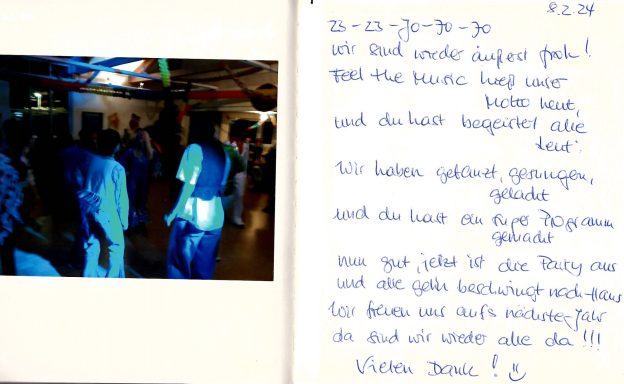 8.2.24
23-23-Jo-Jo-Jo
wir sind wieder äußerst froh!
Feel the Music hieß unser
Motto heut,
und du hast begeistet alle
Leut.
Wir haben getanzt, gesungen,
gelacht
und du hast ein super Programm
gemacht
nun gut, jetzt ist die Party aus
und alle gehn beschwingt nach Haus
Wir freuen uns aufs nächste Jahr
da sind wir wieder alle da!!!
Vielen Dank!